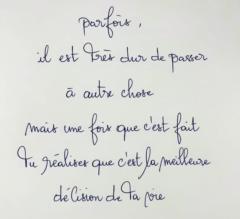 parfois,
il est très dur de passer
à autre chose
mais une fois que c'est fait
tu réalises que c'est la meilleure
décision de ta vie